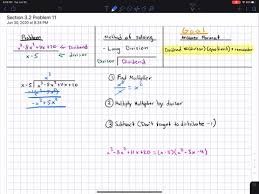 Section 3.2 Problem 11
Problem
x³-8x²+11x+20 ← Dividend
x-5 ← divisor
Method of solving
- Long Division
Divisor Dividend
Goal
Answer Format
Dividend = (divisor)(quotient) + remainder
x²
x-5 x³-8x²+11x+20
① Find Multiplier
x³/x = x²
② Multiply Multiplier by divisor
③ Subtract (Don't forget to distribute -1)
x³-8x²+11x+20 = (x-5)(x²-3x-4)